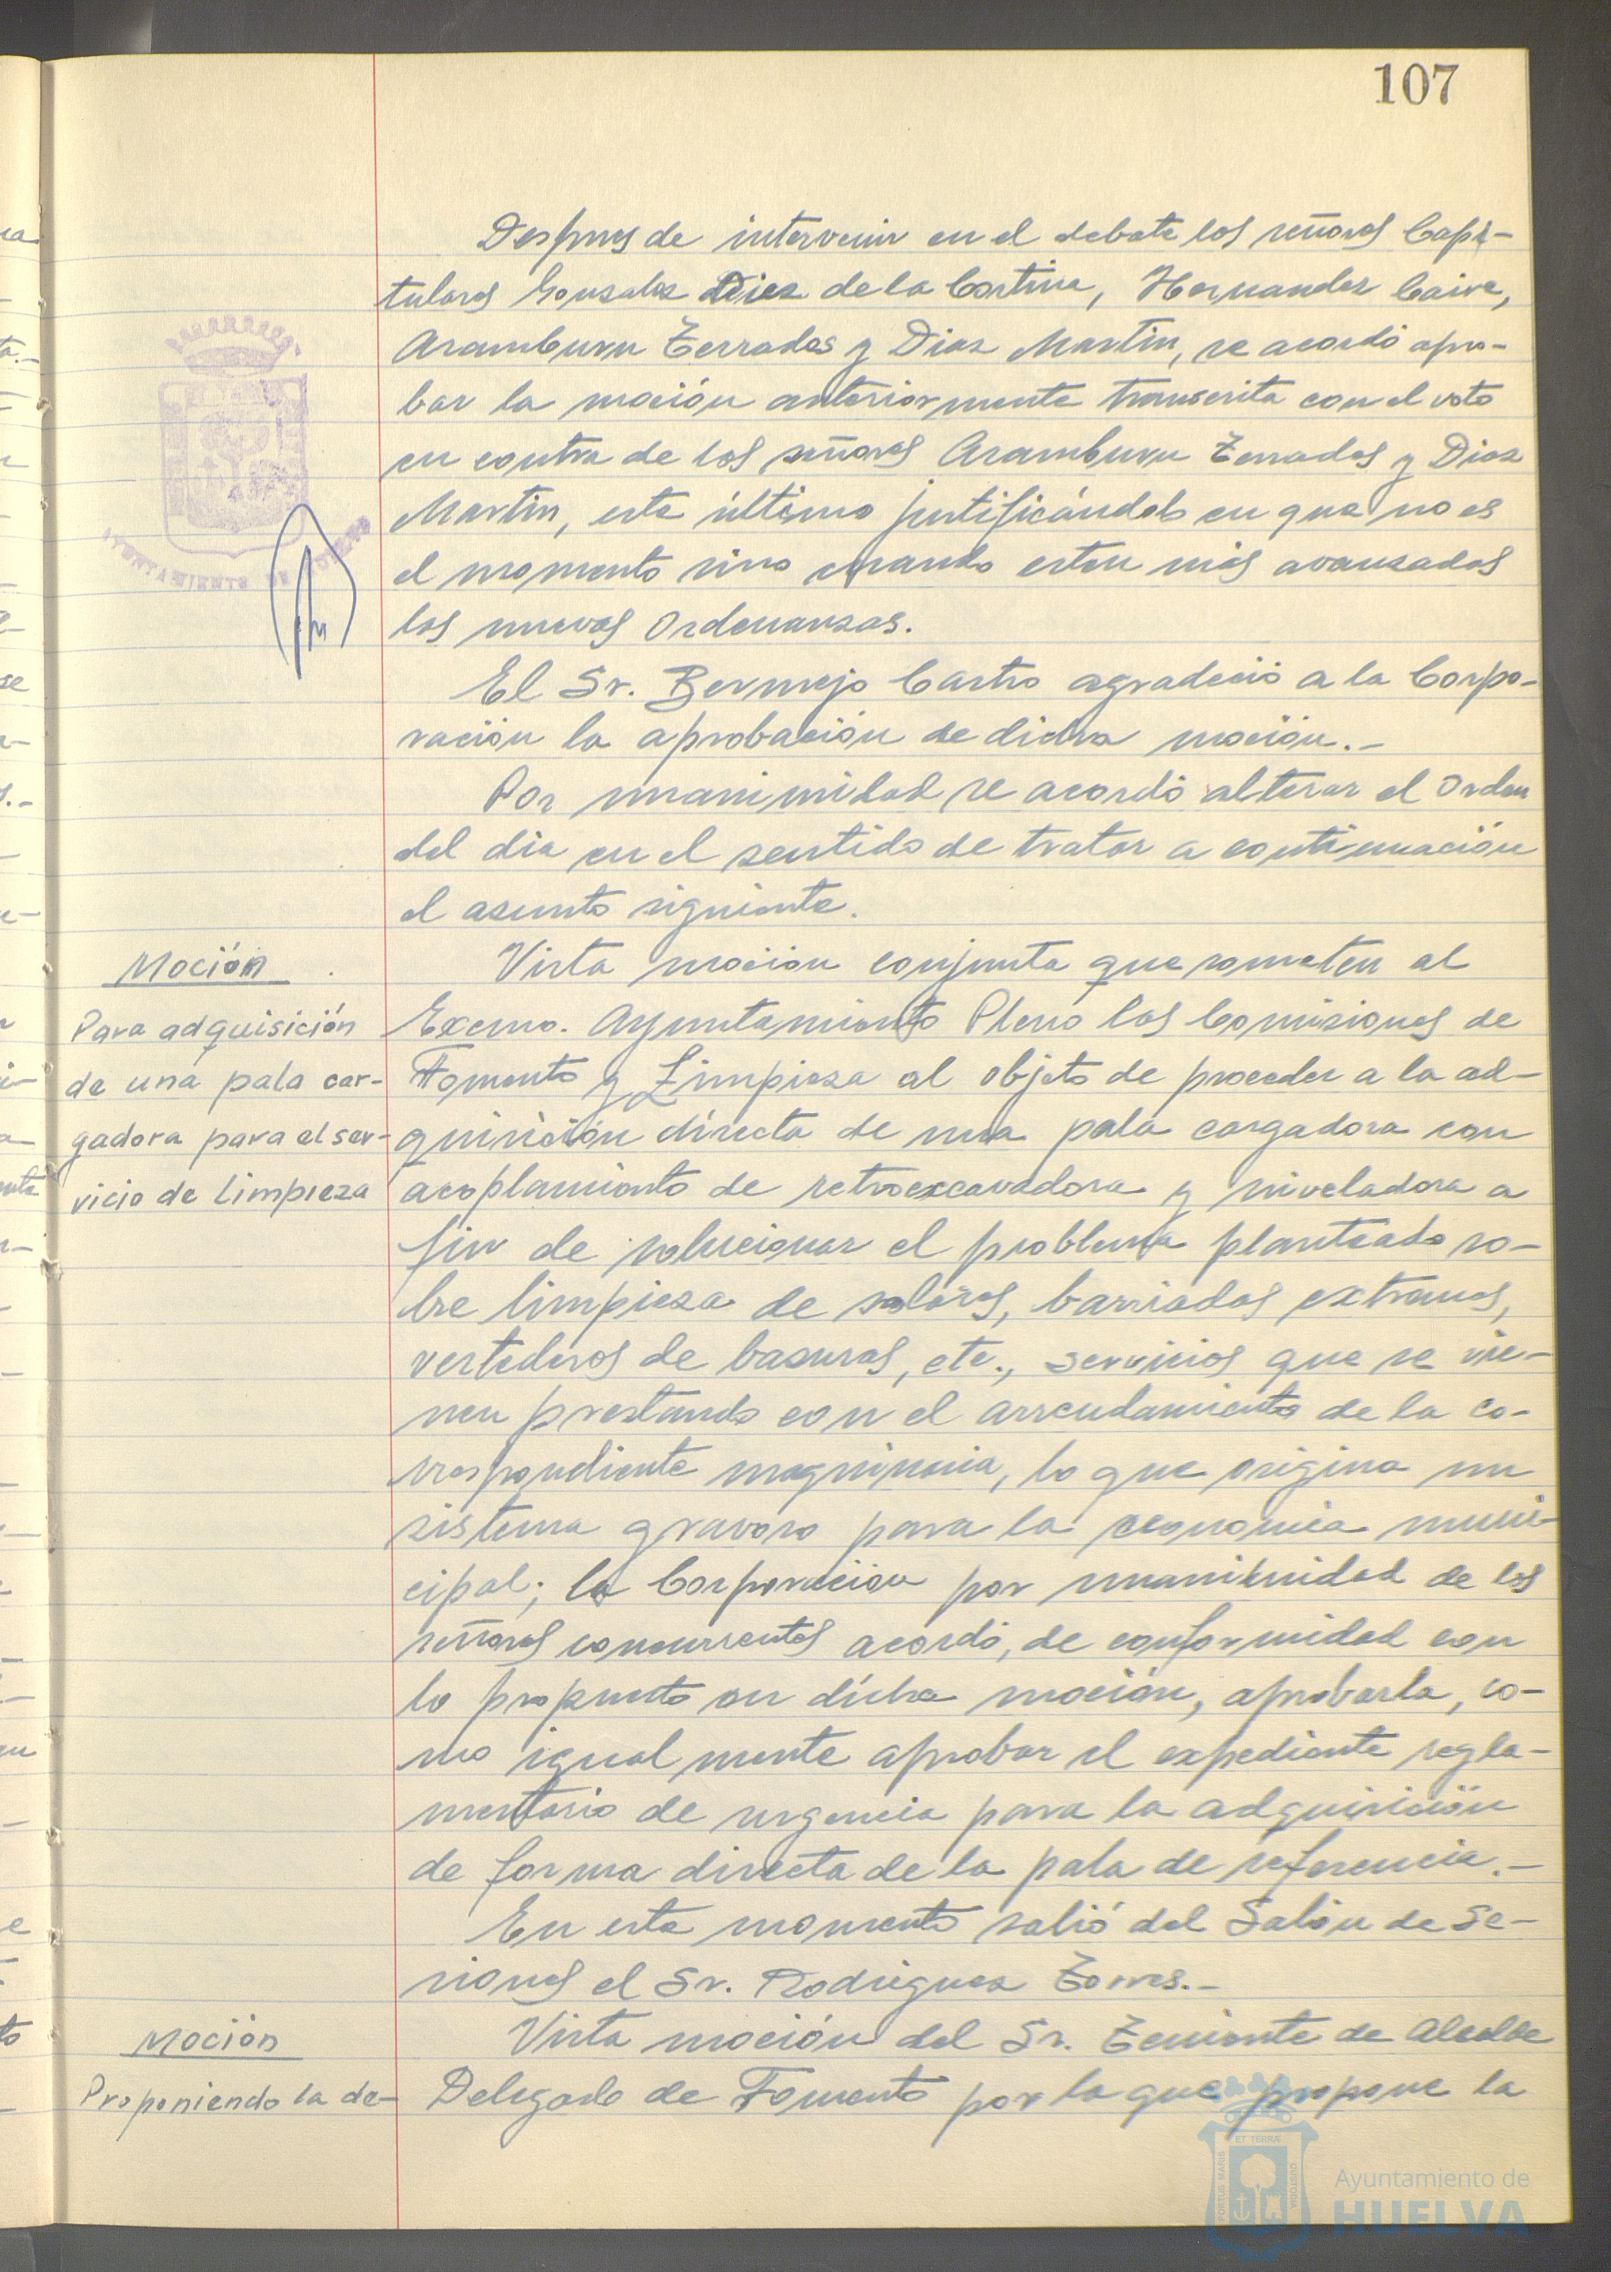 107
Despues de intervenir en el debate los señores Capi-
tulares Gonzalez Diez de la Cortina, Hernandez Caire,
Aramburu Terrades y Diaz Martin, se acordó apro-
bar la moción anteriormente transcrita con el voto
en contra de los señores Aramburu Terrades y Diaz
Martin, este último justificándolo en que no es
el momento sino cuando esten más avanzados
las nuevas Ordenanzas.
El Sr. Bermejo Castro agradeció a la Corpo-
ración la aprobación de dicha moción.-
Por unanimidad se acordó alterar el Orden
del dia en el sentido de tratar a continuación
el asunto siguiente.
Moción
Para adquisición
de una pala car-
gadora para el ser-
vicio de limpieza
Vista moción conjunta que someten al
Excmo. Ayuntamiento Pleno las Comisiones de
Fomento y Limpieza al objeto de proceder a la ad-
quisición directa de una pala cargadora con
acoplamiento de retroexcavadora y niveladora a
fin de solucionar el problema planteado so-
bre limpieza de solares, barriadas extremas,
vertederos de basuras, etc., servicios que se vie-
nen prestando con el arrendamiento de la co-
rrespondiente maquinaria, lo que origina un
sistema gravoso para la economia muni-
cipal; la Corporación por unanimidad de los
señores concurrentes acordó, de conformidad con
lo propuesto en dicha moción, aprobarla, co-
mo igualmente aprobar el expediente regla-
mentario de urgencia para la adquisición
de forma directa de la pala de referencia.-
En este momento salió del Salón de Se-
siones el Sr. Rodriguez Torres.-
Moción
Proponiendo la de-
Vista moción del Sr. Teniente de Alcalde
Delegado de Fomento por la que propone la
AYUNTAMIENTO DE HUELVA
PORTUS MARIS ET TERRAE CUSTODIA
Ayuntamiento de
HUELVA